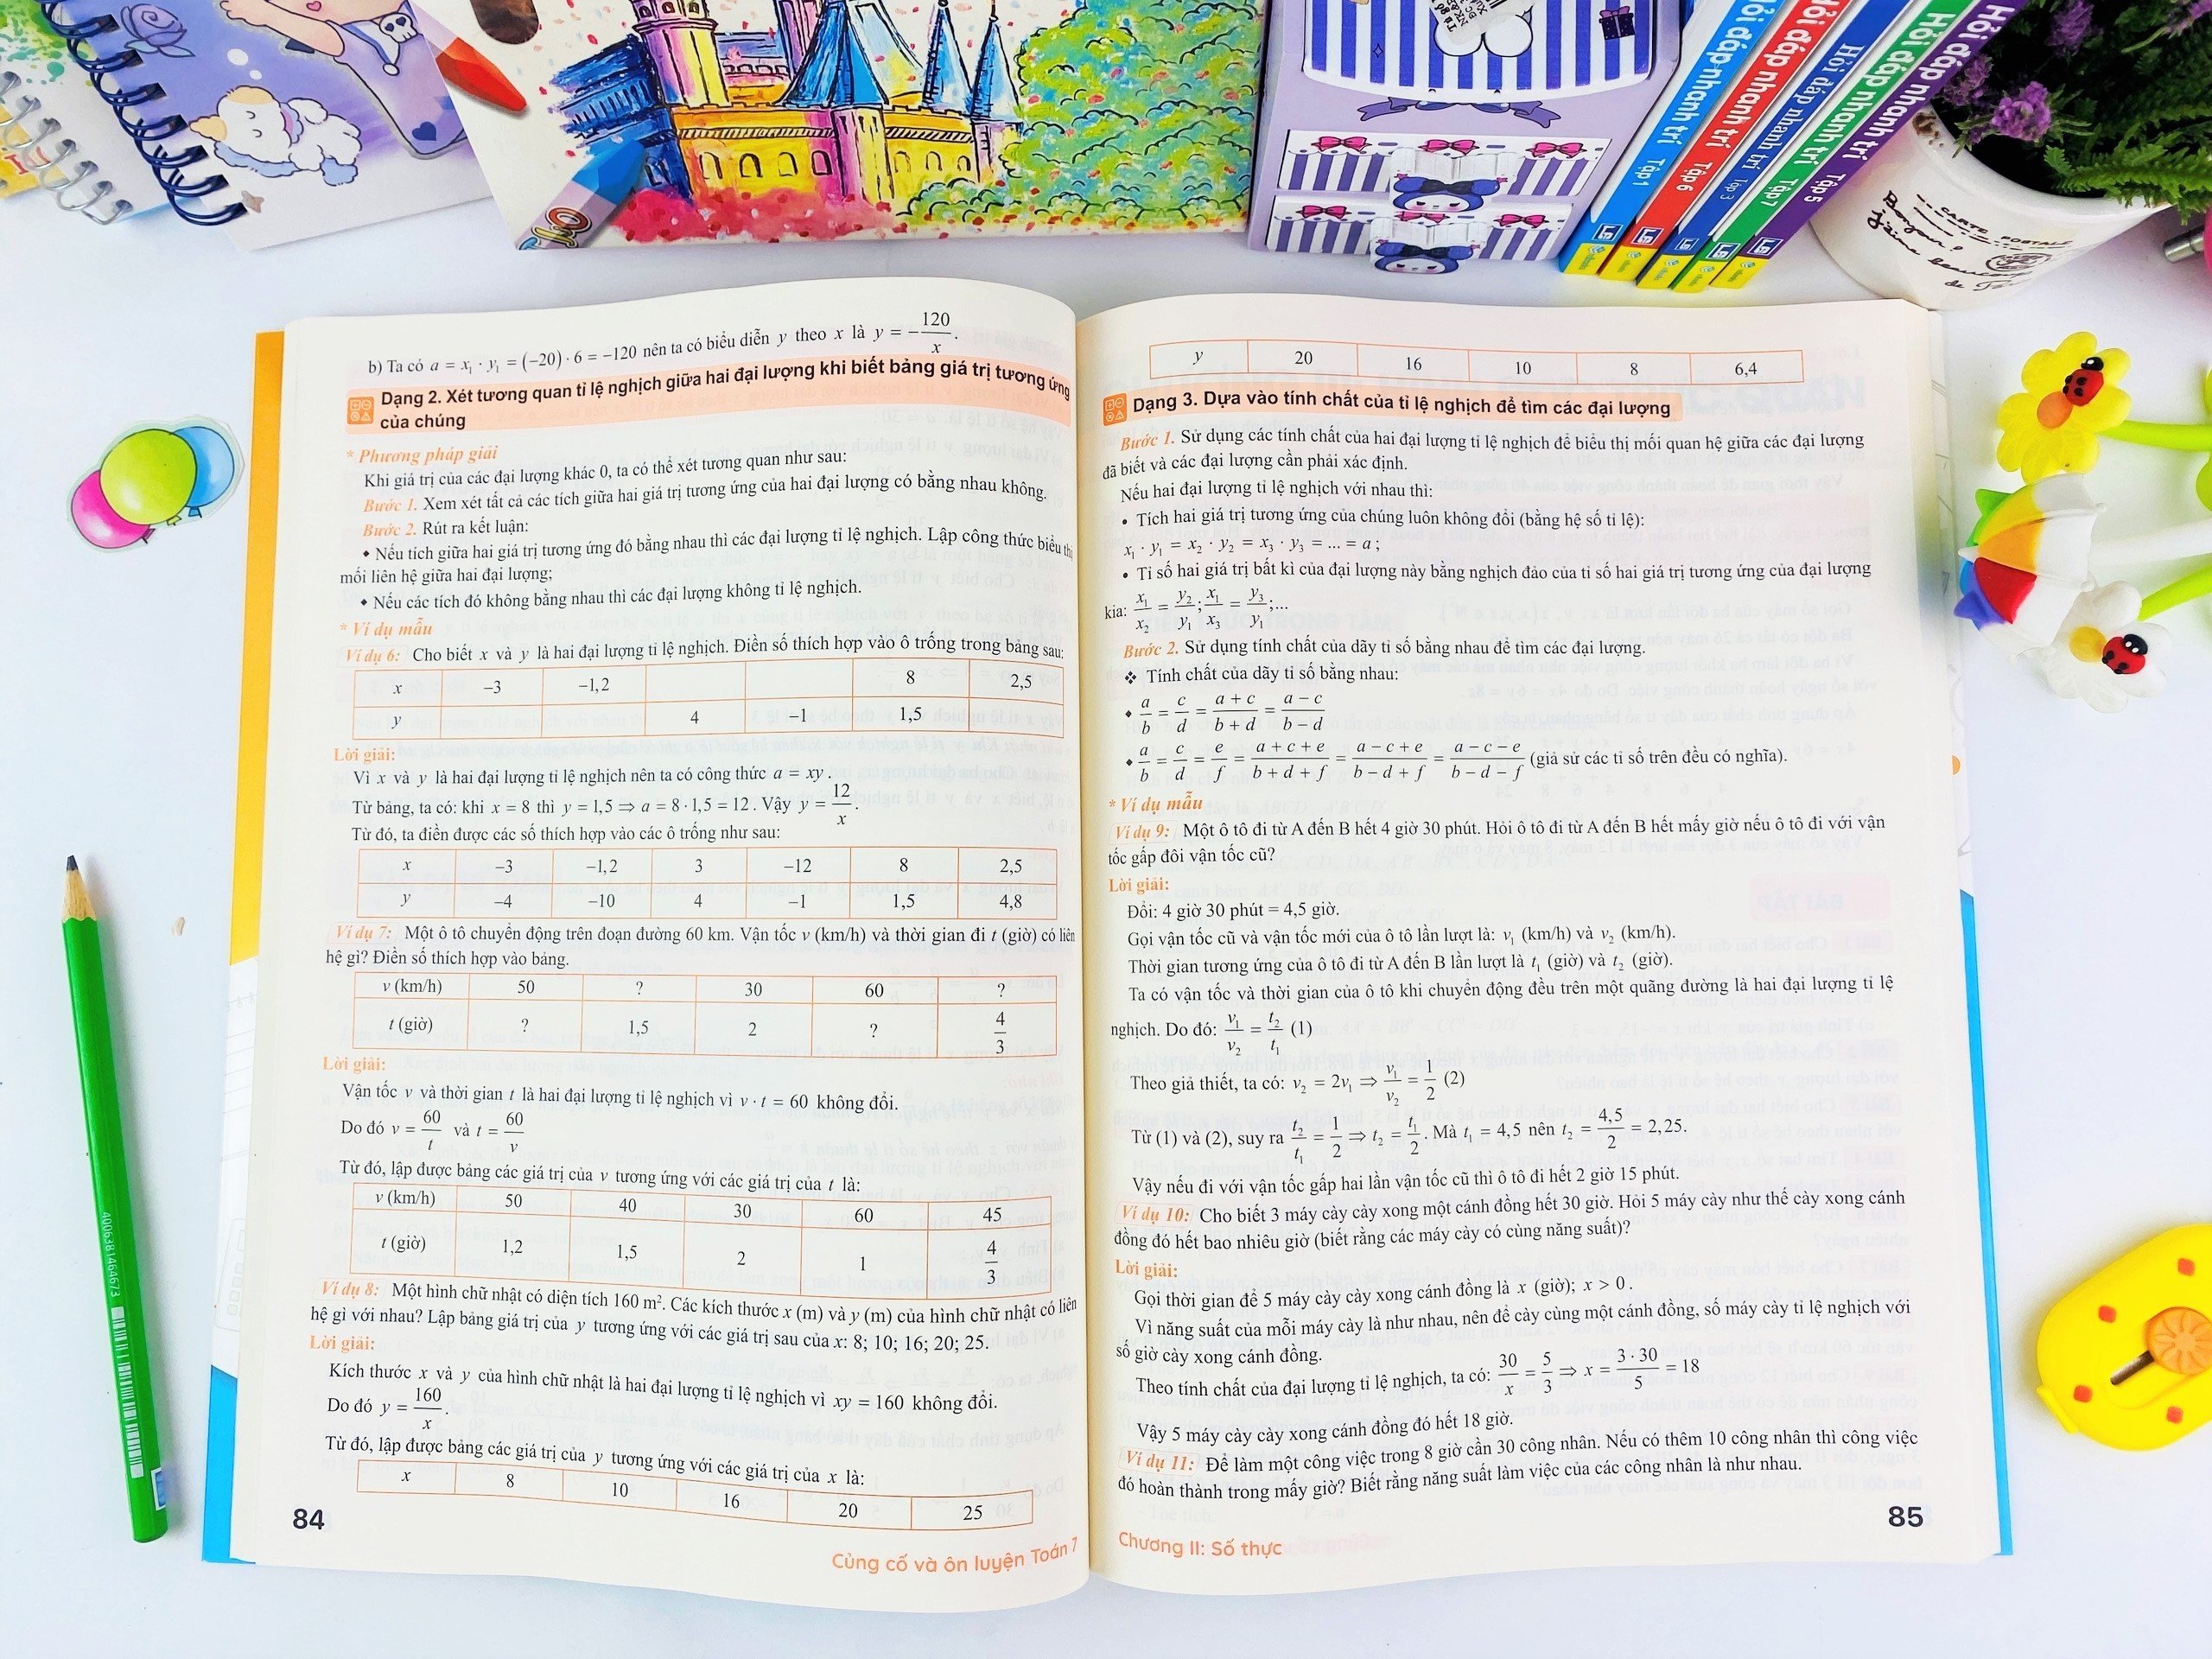 Hỏi đáp nhanh trí Tập 1
Hỏi đáp nhanh trí Tập 6
Hỏi đáp nhanh trí Tập 3
Hỏi đáp nhanh trí Tập 7
Hỏi đáp nhanh trí Tập 5
CARTE POSTALE
Bonjour!
b) Ta có a = x₁ · y₁ = (−20) · 6 = −120 nên ta có biểu diễn y theo x là y = −120/x.
Dạng 2. Xét tương quan tỉ lệ nghịch giữa hai đại lượng khi biết bảng giá trị tương ứng
của chúng
* Phương pháp giải
Khi giá trị của các đại lượng khác 0, ta có thể xét tương quan như sau:
Bước 1. Xem xét tất cả các tích giữa hai giá trị tương ứng của hai đại lượng có bằng nhau không.
Bước 2. Rút ra kết luận:
♦ Nếu tích giữa hai giá trị tương ứng đó bằng nhau thì các đại lượng tỉ lệ nghịch. Lập công thức biểu thị
mối liên hệ giữa hai đại lượng;
♦ Nếu các tích đó không bằng nhau thì các đại lượng không tỉ lệ nghịch.
* Ví dụ mẫu
Ví dụ 6: Cho biết x và y là hai đại lượng tỉ lệ nghịch. Điền số thích hợp vào ô trống trong bảng sau:
x −3 −1,2 8 2,5
y 4 −1 1,5
Lời giải:
Vì x và y là hai đại lượng tỉ lệ nghịch nên ta có công thức a = xy.
Từ bảng, ta có: khi x = 8 thì y = 1,5 ⇒ a = 8 · 1,5 = 12. Vậy y = 12/x.
Từ đó, ta điền được các số thích hợp vào các ô trống như sau:
x −3 −1,2 3 −12 8 2,5
y −4 −10 4 −1 1,5 4,8
Ví dụ 7: Một ô tô chuyển động trên đoạn đường 60 km. Vận tốc v (km/h) và thời gian đi t (giờ) có liên
hệ gì? Điền số thích hợp vào bảng.
v (km/h) 50 ? 30 60 ?
t (giờ) ? 1,5 2 ? 4/3
Lời giải:
Vận tốc v và thời gian t là hai đại lượng tỉ lệ nghịch vì v · t = 60 không đổi.
Do đó v = 60/t và t = 60/v
Từ đó, lập được bảng các giá trị của v tương ứng với các giá trị của t là:
v (km/h) 50 40 30 60 45
t (giờ) 1,2 1,5 2 1 4/3
Ví dụ 8: Một hình chữ nhật có diện tích 160 m². Các kích thước x (m) và y (m) của hình chữ nhật có liên
hệ gì với nhau? Lập bảng giá trị của y tương ứng với các giá trị sau của x: 8; 10; 16; 20; 25.
Lời giải:
Kích thước x và y của hình chữ nhật là hai đại lượng tỉ lệ nghịch vì xy = 160 không đổi.
Do đó y = 160/x.
Từ đó, lập được bảng các giá trị của y tương ứng với các giá trị của x là:
x 8 10 16 20 25
84
Củng cố và ôn luyện Toán 7
y 20 16 10 8 6,4
Dạng 3. Dựa vào tính chất của tỉ lệ nghịch để tìm các đại lượng
Bước 1. Sử dụng các tính chất của hai đại lượng tỉ lệ nghịch để biểu thị mối quan hệ giữa các đại lượng
đã biết và các đại lượng cần phải xác định.
Nếu hai đại lượng tỉ lệ nghịch với nhau thì:
• Tích hai giá trị tương ứng của chúng luôn không đổi (bằng hệ số tỉ lệ):
x₁ · y₁ = x₂ · y₂ = x₃ · y₃ = ... = a;
• Tỉ số hai giá trị bất kì của đại lượng này bằng nghịch đảo của tỉ số hai giá trị tương ứng của đại lượng
kia: x₁/x₂ = y₂/y₁; x₁/x₃ = y₃/y₁;...
Bước 2. Sử dụng tính chất của dãy tỉ số bằng nhau để tìm các đại lượng.
❖ Tính chất của dãy tỉ số bằng nhau:
♦ a/b = c/d = (a + c)/(b + d) = (a − c)/(b − d)
♦ a/b = c/d = e/f = (a + c + e)/(b + d + f) = (a − c + e)/(b − d + f) = (a − c − e)/(b − d − f) (giả sử các tỉ số trên đều có nghĩa).
* Ví dụ mẫu
Ví dụ 9: Một ô tô đi từ A đến B hết 4 giờ 30 phút. Hỏi ô tô đi từ A đến B hết mấy giờ nếu ô tô đi với vận
tốc gấp đôi vận tốc cũ?
Lời giải:
Đổi: 4 giờ 30 phút = 4,5 giờ.
Gọi vận tốc cũ và vận tốc mới của ô tô lần lượt là: v₁ (km/h) và v₂ (km/h).
Thời gian tương ứng của ô tô đi từ A đến B lần lượt là t₁ (giờ) và t₂ (giờ).
Ta có vận tốc và thời gian của ô tô khi chuyển động đều trên một quãng đường là hai đại lượng tỉ lệ
nghịch. Do đó: v₁/v₂ = t₂/t₁ (1)
Theo giả thiết, ta có: v₂ = 2v₁ ⇒ v₁/v₂ = 1/2 (2)
Từ (1) và (2), suy ra t₂/t₁ = 1/2 ⇒ t₂ = t₁/2. Mà t₁ = 4,5 nên t₂ = 4,5/2 = 2,25.
Vậy nếu đi với vận tốc gấp hai lần vận tốc cũ thì ô tô đi hết 2 giờ 15 phút.
Ví dụ 10: Cho biết 3 máy cày cày xong một cánh đồng hết 30 giờ. Hỏi 5 máy cày như thế cày xong cánh
đồng đó hết bao nhiêu giờ (biết rằng các máy cày có cùng năng suất)?
Lời giải:
Gọi thời gian để 5 máy cày cày xong cánh đồng là x (giờ); x > 0.
Vì năng suất của mỗi máy cày là như nhau, nên để cày cùng một cánh đồng, số máy cày tỉ lệ nghịch với
số giờ cày xong cánh đồng.
Theo tính chất của đại lượng tỉ lệ nghịch, ta có: 30/x = 5/3 ⇒ x = (3 · 30)/5 = 18
Vậy 5 máy cày cày xong cánh đồng đó hết 18 giờ.
Ví dụ 11: Để làm một công việc trong 8 giờ cần 30 công nhân. Nếu có thêm 10 công nhân thì công việc
đó hoàn thành trong mấy giờ? Biết rằng năng suất làm việc của các công nhân là như nhau.
85
Chương II: Số thực
4006381464673